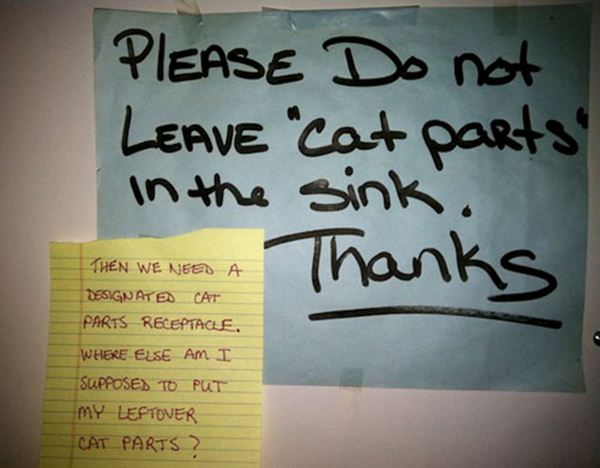 PLEASE Do not
LEAVE "cat parts"
in the sink.
Thanks
THEN WE NEED A
DESIGNATED CAT
PARTS RECEPTACLE.
WHERE ELSE AM I
SUPPOSED TO PUT
MY LEFTOVER
CAT PARTS?